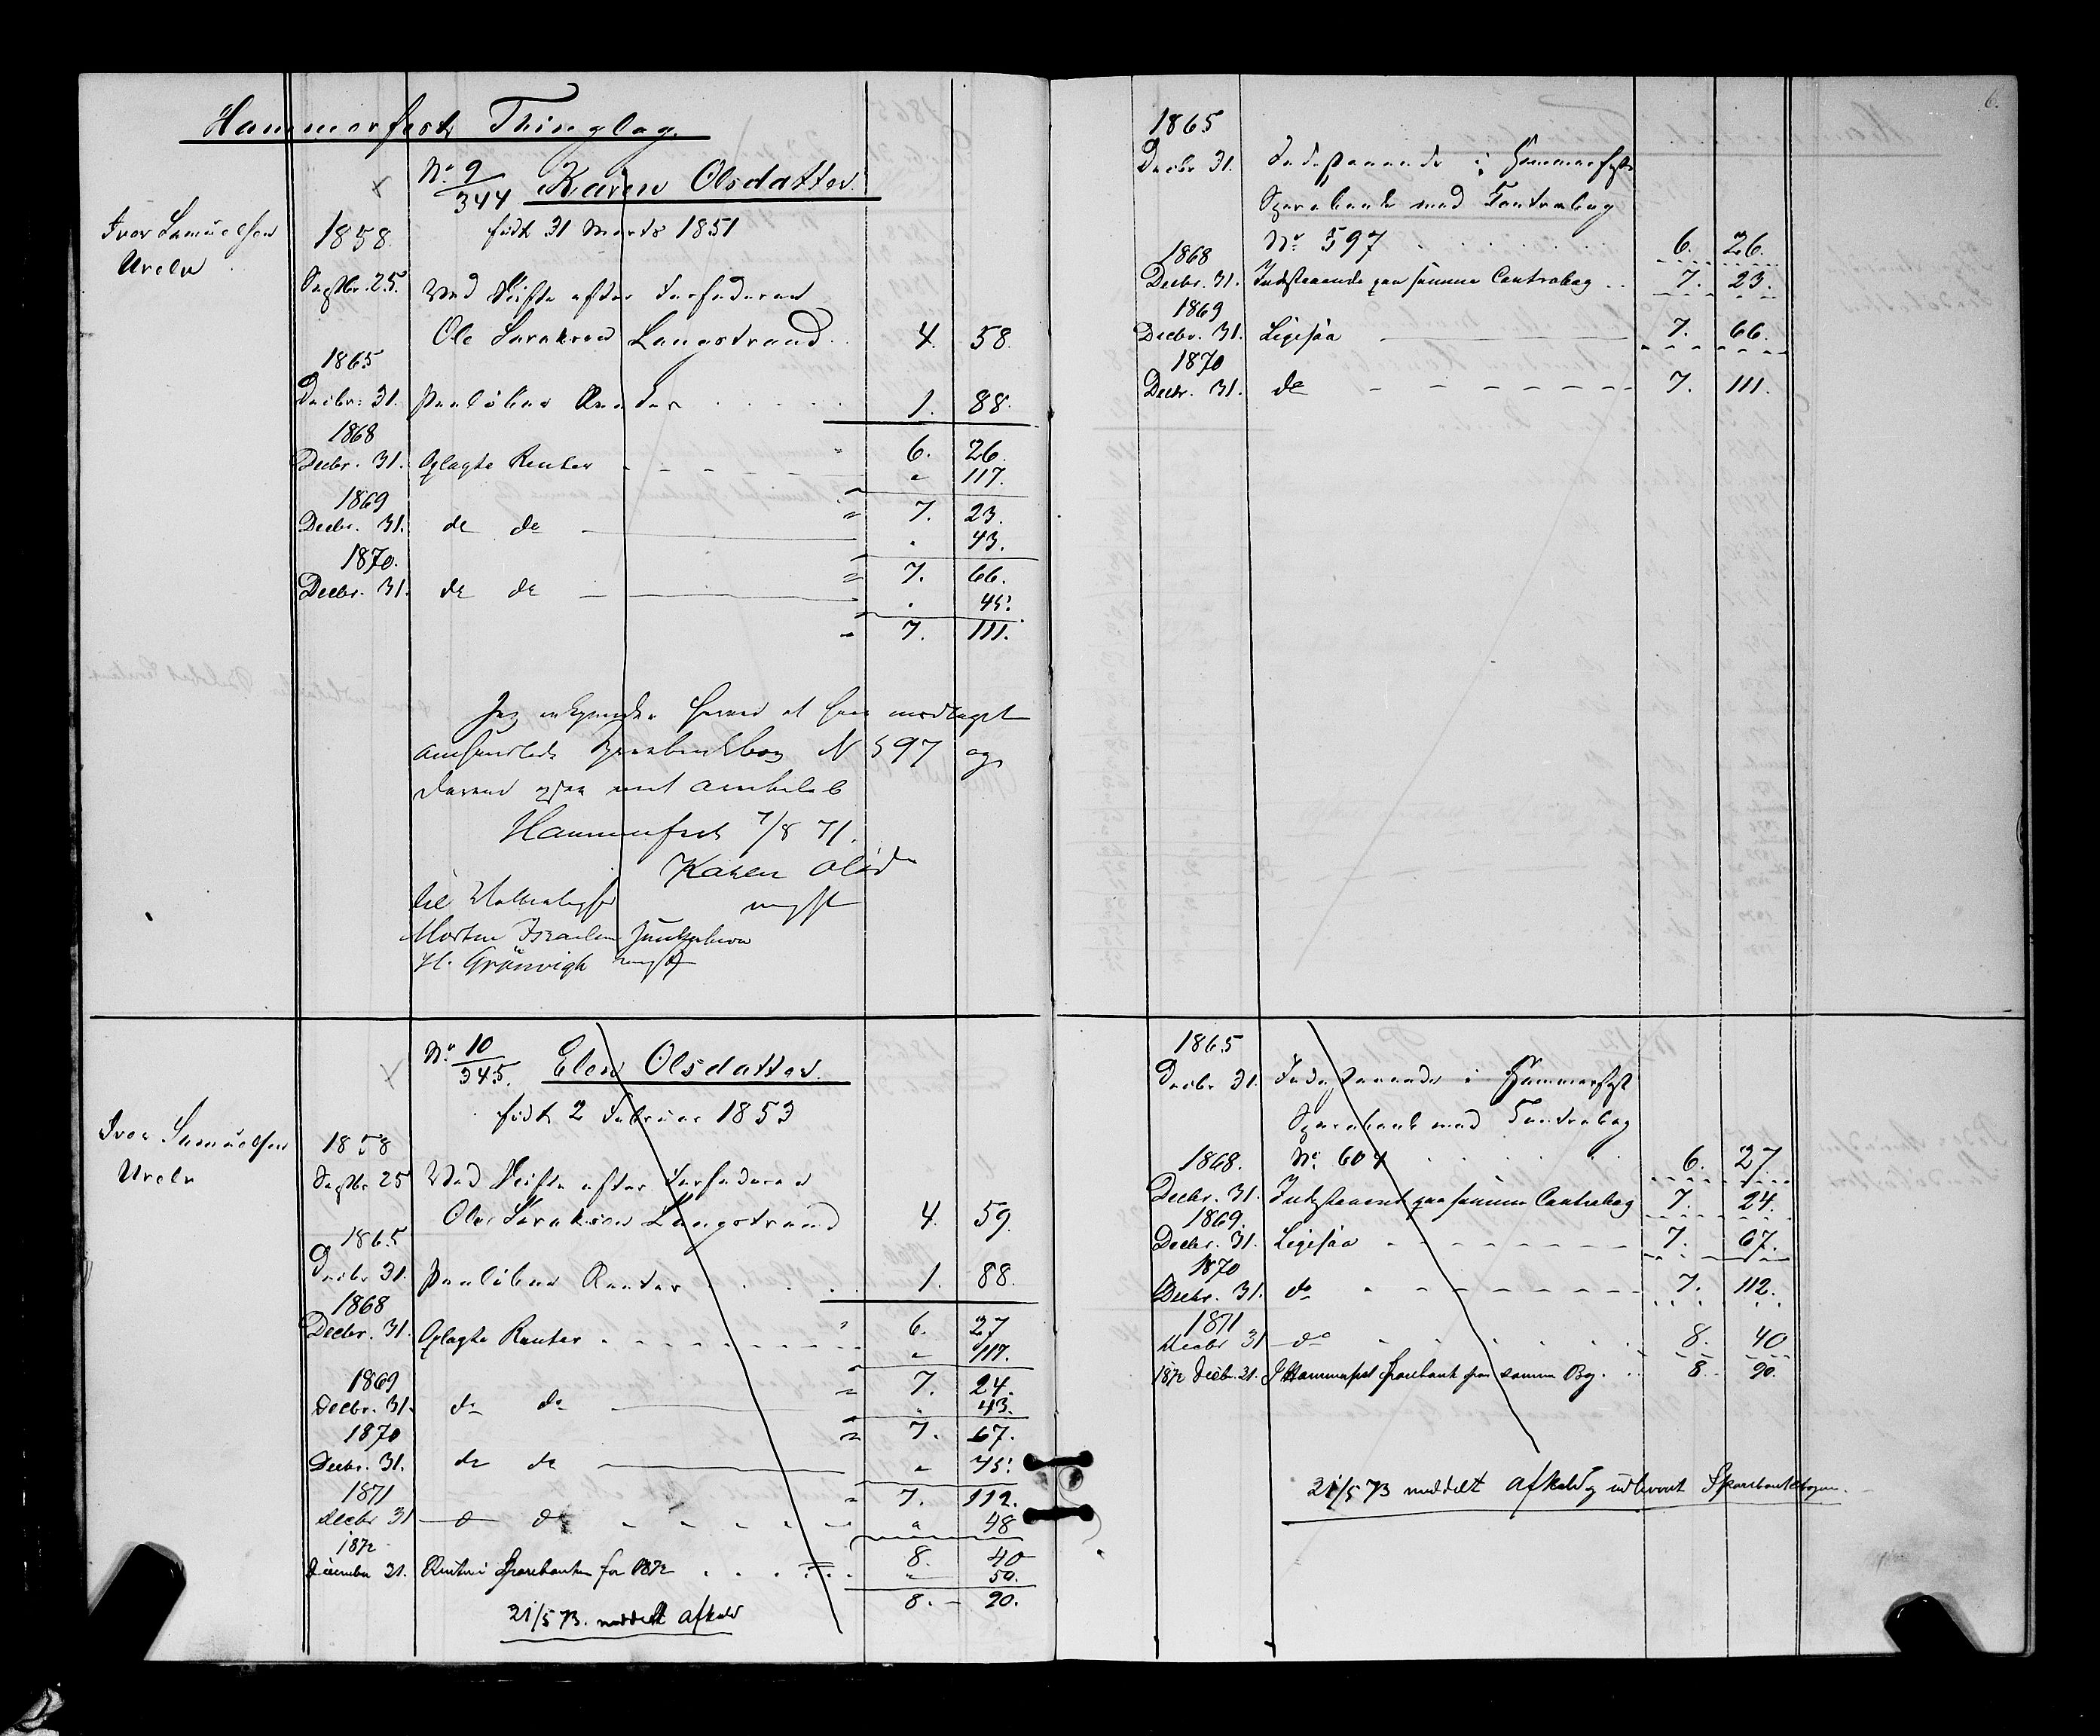 Hammerfest Thinglag.
No 9/344 Karen Olsdatter.
født 31 Marts 1851
Iver Samuelsen
1858
Septbr. 25. Ved Skifte efter Forfaderen
Ole Larsen Langstrand 4. 58.
1865
Decbr. 31. Paaløbne Renter 1. 88.
6. 26.
1868
Decbr. 31. Oplagte Renter " 117.
7. 23.
1869
Decbr. 31. do do 43.
7. 66.
1870.
Decbr. 31. do do 45.
7. 111.
Jeg erkjender herved at have modtaget
Sparebanksbog N 597 og
Hammerfest 7/8 71.
Karen Olsd
til Vitterlighed
Morten Israelsen
H. Grønvigh
No 10/345. Elen Olsdatter.
født 2 Februar 1853
Iver Samuelsen
1858
Septbr 25 Ved Skifte efter Forfaderen
Ole Larsen Langstrand 4. 59.
1865
Decbr 31. Paaløbne Renter 1. 88.
6. 27
1868
Decbr. 31. Oplagte Renter " 117.
7. 24.
1869
Decbr. 31. do do 43.
7. 67.
1870
Decbr. 31. do do " 45.
7. 112.
1871
Decbr 31 do do " 48
8. 40
1872
December 31. Renter i Sparebanken for 1872 " 50.
8. 90.
21/5 73. meddelt Afkald
6.
1865
Decbr 31. Indestaaende i Hammerfest
Sparebank med Contrabog
No 597 6. 26.
1868
Decbr. 31. Indestaaende paa samme Contrabog 7. 23.
1869
Decbr. 31. Ligesaa 7. 66.
1870
Decbr. 31. do 7. 111.
1865
Decbr 31. Indestaaende i Hammerfest
Sparebank med Contrabog
No 604 6. 27.
1868.
Decbr. 31. Indestaaende paa samme Contrabog 7. 24.
1869.
Decbr. 31. Ligesaa 7. 67.
1870
Decbr. 31. do 7. 112.
1871
Decbr 31 do 8. 40
1872 Decbr. 31. I Hammerfest Sparebank paa samme Bog. 8. 90.
21/5 73 meddelt Afkald og udleveret Sparebankbogen.